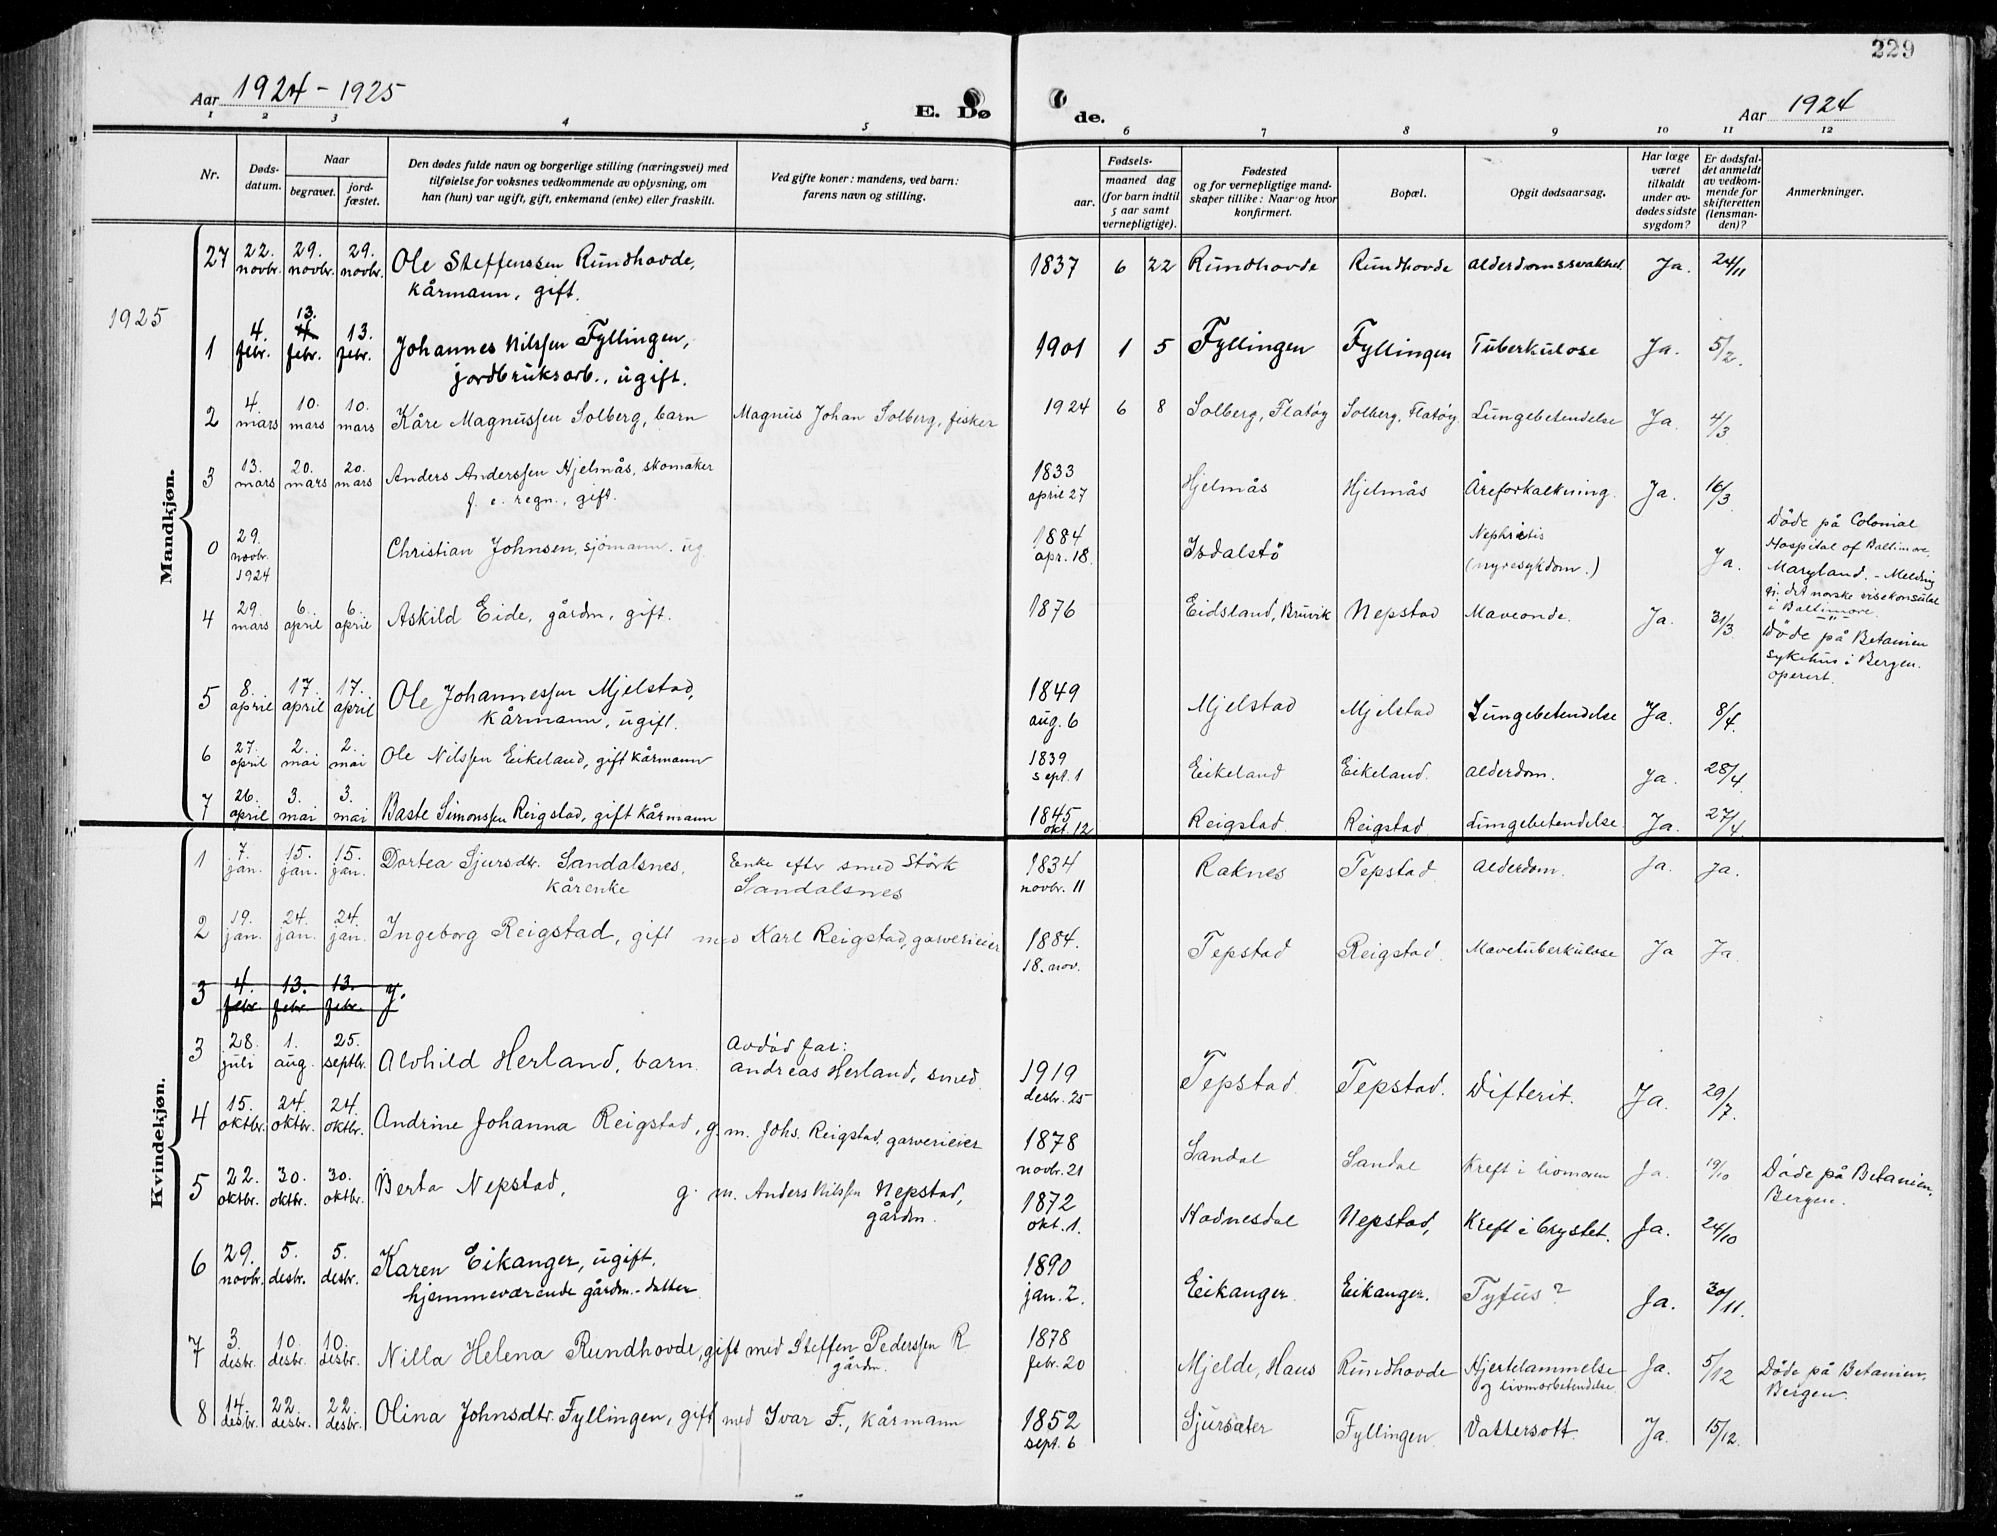 229
Aar 1924 - 1925
E. Dø
de.
Aar 1924
1 2 3 4 5 6 7 8 9 10 11 12
Nr.
Døds-
datum.
Naar
begravet.
jord-
fæstet.
Den dødes fulde navn og borgerlige stilling (næringsvei) med
tilføielse for voksnes vedkommende av oplysning, om
han (hun) var ugift, gift, enkemand (enke) eller fraskilt.
Ved gifte koner: mandens, ved barn:
farens navn og stilling.
Fødsels-
aar.
maaned dag
(for barn indtil
5 aar samt
vernepligtige).
Fødested
og for vernepligtige mand-
skaper tillike: Naar og hvor
konfirmert.
Bopæl.
Opgit dødsaarsag.
Har læge
været
tilkaldt
under av-
dødes sidste
sygdom?
Er dødsfal-
det anmeldt
av vedkom-
mende for
skifteretten
(lensman-
den)?
Anmerkninger.
Mandkjøn.
27 22. novbr. 29. novbr. 29. novbr. Ole Steffenssen Rundhovde, 1837 6 22 Rundhovde Rundhovde Alderdomssvakhet. Ja. 24/11
kårmann, gift.
1925
1 4. febr. 13. 4 febr. 13. febr. Johannes Nilssen Fyllingen, 1901 1 5 Fyllingen Fyllingen Tuberkulose Ja. 5/2.
jordbruksarb., ugift.
2 4. mars 10. mars 10. mars Kåre Magnussen Solberg, barn Magnus Johan Solberg, fisker 1924 6 8 Solberg, Flatøy Solberg, Flatøy. Lungebetendelse Ja. 4/3
3 13. mars 20. mars 20. mars Anders Anderssen Hjelmås, skomaker 1833 april 27 Hjelmås Hjelmås Åreforkalkning. Ja. 16/3
f. e. regn., gift.
0 29. novbr. 1924 Christian Johnsen, sjömann. ug. 1884 apr. 18. Isdalstö Nephritis (nyresykdom.) Ja. Döde på Colonial
Hospital of Baltimore,
Maryland. - Melding
gj. det norske visekonsulat
i Baltimore.
4 29. mars 6. april 6. april Askild Eide, gårdm, gift. 1876 Eidsland, Bruvik Nepstad Maveonde. Ja. 31/3 Döde på Betanien
sykehus i Bergen.
operert.
5 8. april 17. april 17. april Ole Johannessen Mjelstad, 1849 aug. 6 Mjelstad Mjelstad Lungebetendelse Ja. 8/4.
kårmann, ugift.
6 27. april 2. mai 2. mai Ole Nilssen Eikeland, gift kårmann 1839 sept. 1 Eikeland Eikeland. Alderdom. Ja. 28/4.
7 26. april 3. mai 3. mai Baste Simonssen Reigstad, gift kårmann 1845 okt. 12 Reigstad. Reigstad Lungebetendelse Ja. 27/4
Kvindekjøn.
1 7. jan. 15. jan. 15. jan. Dortea Sjursdtr. Sandalsnes, Enke efter smed Störk 1834 novbr. 11 Raknes Tepstad Alderdom. Ja. Ja.
kårenke Sandalsnes
2 19. jan. 24. jan. 24. jan. Ingeborg Reigstad, gift med Karl Reigstad, garverieier 1884. 18. nov. Tepstad Reigstad. Mavetuberkulose Ja Ja.
3 4. febr. 13. febr. 13. febr. J.
3 28. juli 1. aug. 25. septbr. Alvhild Herland, barn. Avdöd far: 1919 desbr. 25 Tepstad. Tepstad. Difterit. Ja. 29/7.
Andreas Herland, smed.
4 15. oktbr. 24. oktbr. 24. oktbr. Andrine Johanna Reigstad, g. m. Johs. Reigstad, garverieier 1878 novbr. 21 Sandal Sandal Kreft i livmoren Ja. 19/10 Döde på Betanien,
Bergen.
5 22. oktbr. 30. oktbr. 30. oktbr. Berta Nepstad, g. m. Anders Nilssen Nepstad, 1872 okt. 1. Kodnesdal Nepstad, Kreft i brystet. Ja. 24/10
gårdm.
6 29. novbr. 5. desbr. 5. desbr. Karen Eikanger, ugift, 1890 jan. 2. Eikanger Eikanger. Tyfus? Ja. 30/11.
hjemmeværende gårdm.-datter
7 3. desbr. 10. desbr. 10. desbr. Nilla Helena Rundhovde, gift med Steffen Pederssen R 1878 febr. 20 Mjelde, Haus Rundhovde Hjertelammelse Ja. 5/12 Döde på Betanien,
gårdm. og livmorbetendelse Bergen.
8 14. desbr. 22. desbr. 22. desbr. Olina Johnsdtr. Fyllingen, gift med Ivar F., kårmann 1852 sept. 6 Sjursæter Fyllingen. Vattersott. Ja. 15/12.